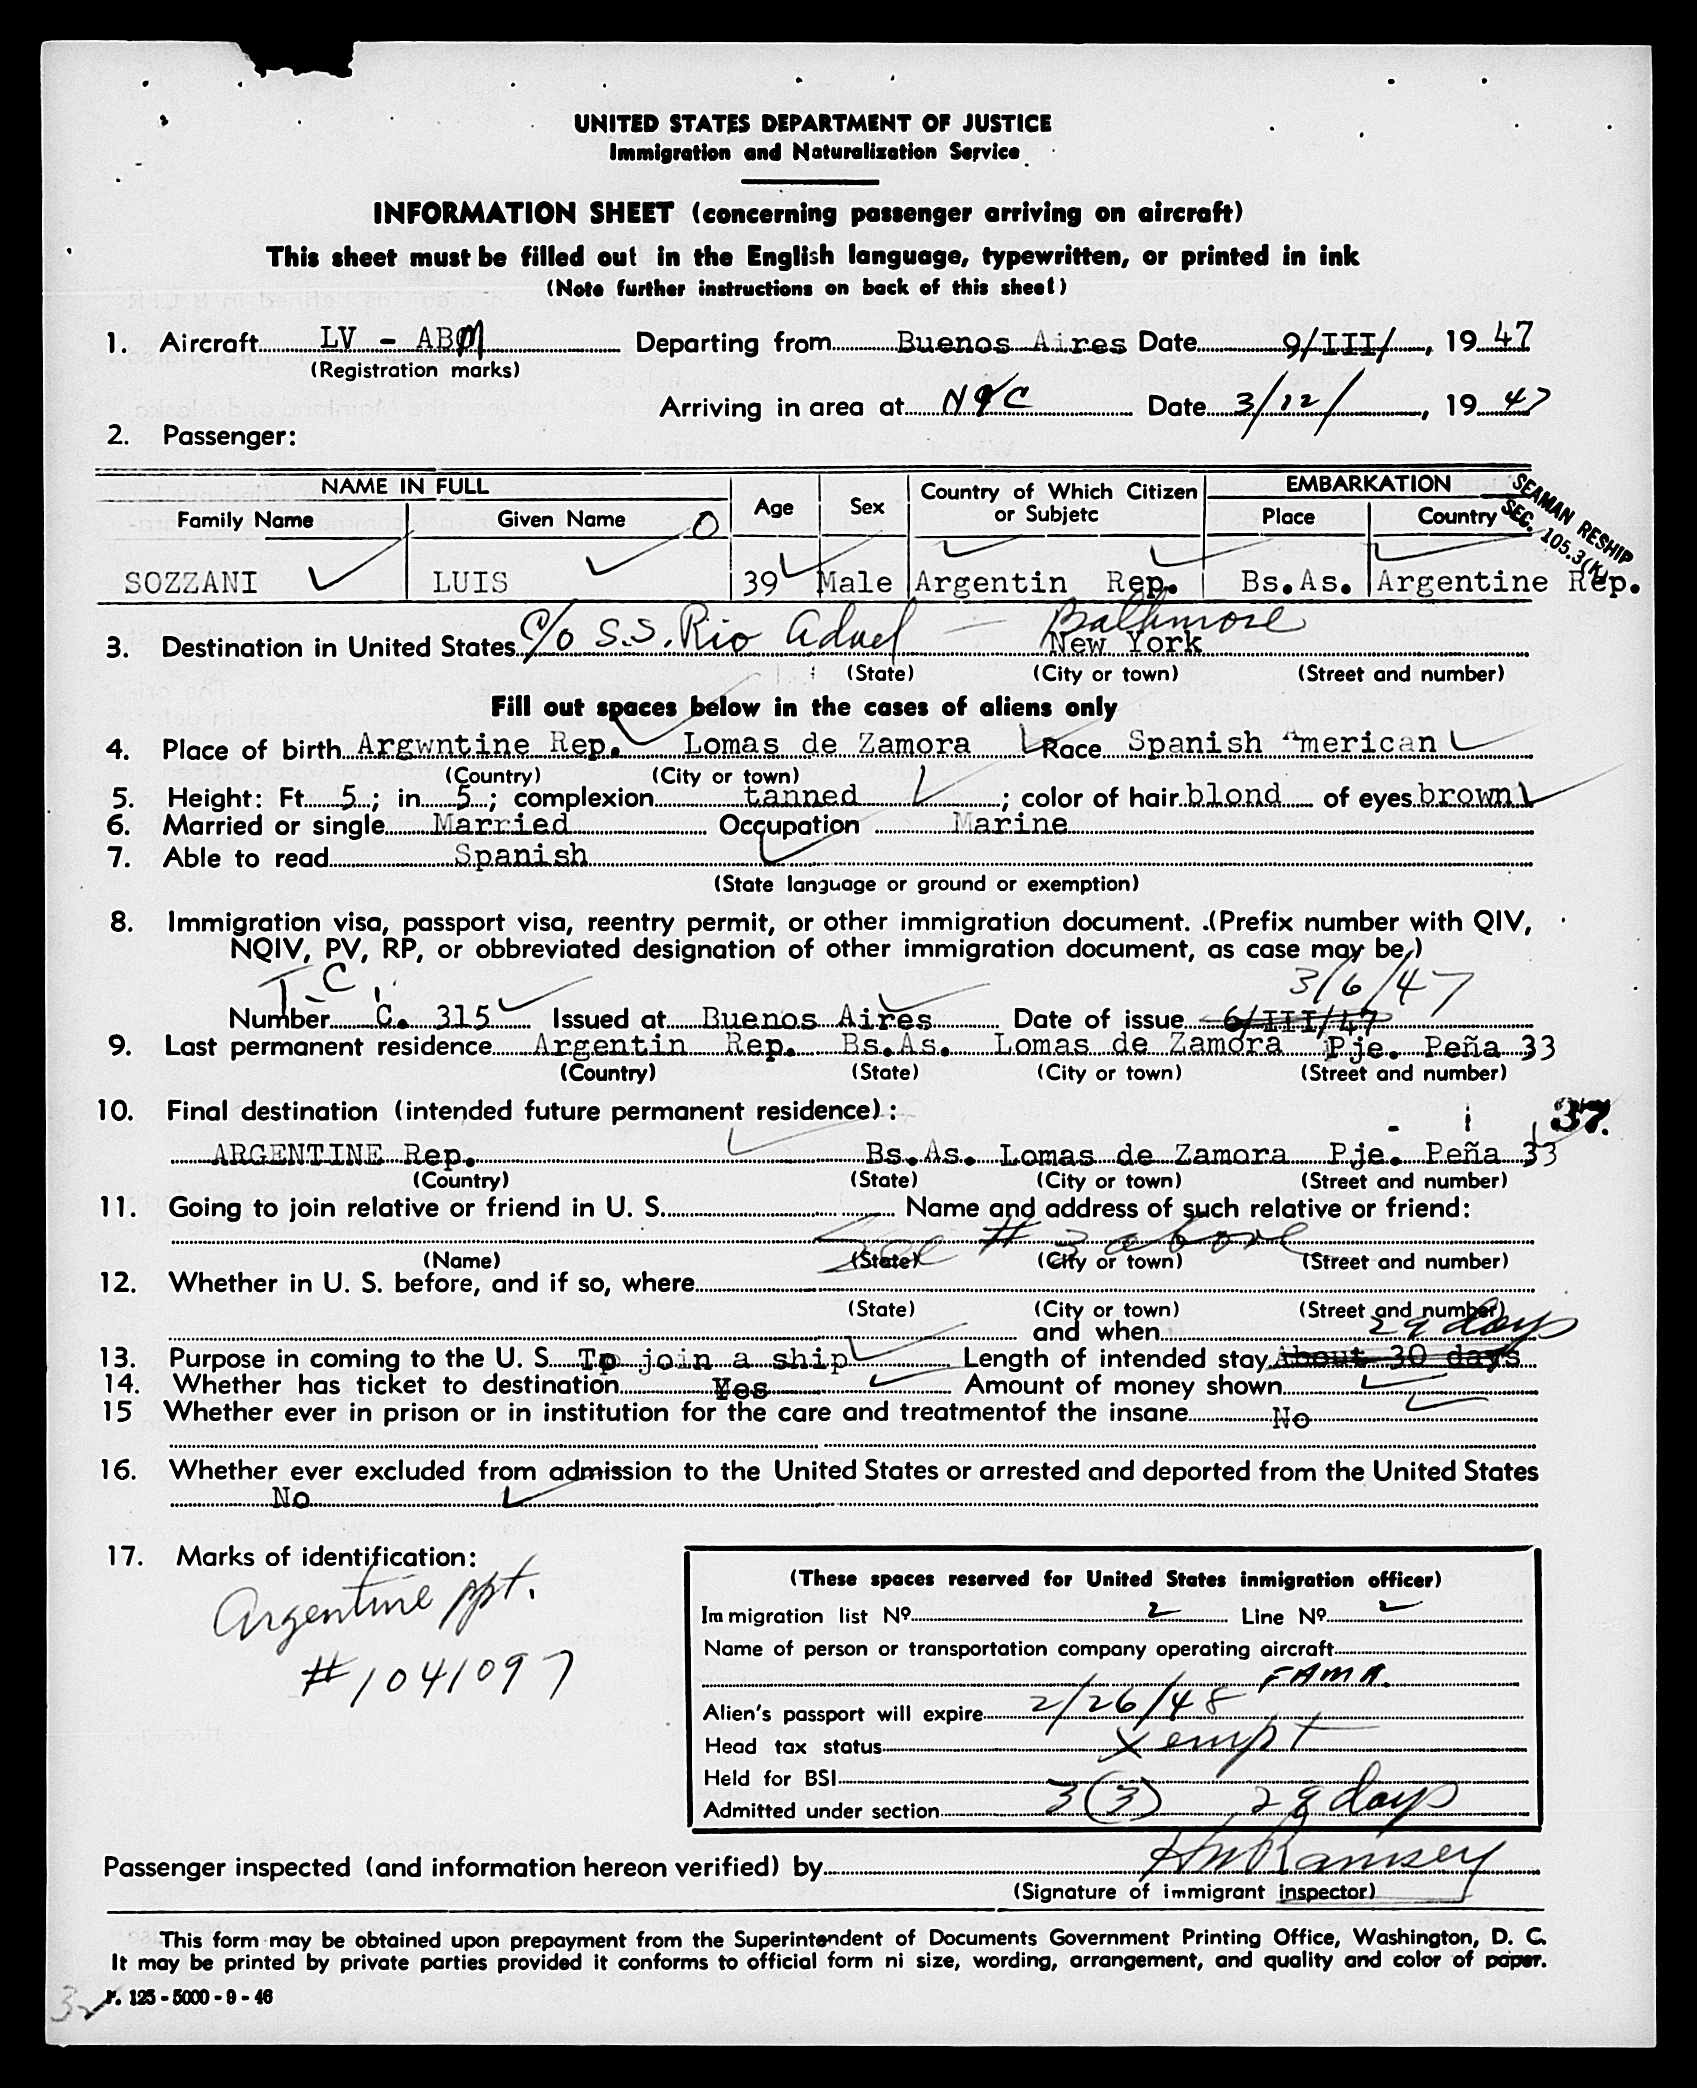 UNITED STATES DEPARTMENT OF JUSTICE
Immigration and Naturalization Service
INFORMATION SHEET (concerning passenger arriving on aircraft)
This sheet must be filled out in the English language, typewritten, or printed in ink
(Note further instructions on back of this sheet)
1. Aircraft LV - ABM Departing from Buenos Aires Date 9/III/, 19 47
(Registration marks)
Arriving in area at NYC Date 3/12/, 19 47
2. Passenger:
NAME IN FULL Age Sex Country of Which Citizen or Subjetc EMBARKATION
Family Name Given Name O Place Country
SEAMAN RESHIP
SEC. 105.3(K)
SOZZANI LUIS 39 Male Argentin Rep. Bs.As. Argentine Rep.
Baltimore
3. Destination in United States c/o S.S. Rio New York
(State) (City or town) (Street and number)
Fill out spaces below in the cases of aliens only
4. Place of birth Argwntine Rep. Lomas de Zamora Race Spanish American
(Country) (City or town)
5. Height: Ft. 5; in. 5; complexion tanned; color of hair blond of eyes brown
6. Married or single Married Occupation Marine
7. Able to read Spanish
(State language or ground or exemption)
8. Immigration visa, passport visa, reentry permit, or other immigration document. .(Prefix number with QIV,
NQIV, PV, RP, or obbreviated designation of other immigration document, as case may be,)
T-C 3/6/47
Number C. 315 Issued at Buenos Aires Date of issue 6/III/47
9. Last permanent residence Argentin Rep. Bs.As. Lomas de Zamora Pje. Peña 33
(Country) (State) (City or town) (Street and number)
10. Final destination (intended future permanent residence):
37.
ARGENTINE Rep. Bs.As. Lomas de Zamora Pje. Peña 33
(Country) (State) (City or town) (Street and number)
11. Going to join relative or friend in U. S. Name and address of such relative or friend:
See # 3 above
(Name) (State) (City or town) (Street and number)
12. Whether in U. S. before, and if so, where
(State) (City or town) (Street and number)
and when
29 days
13. Purpose in coming to the U. S. Tp join a ship Length of intended stay About 30 days
14. Whether has ticket to destination Yes Amount of money shown
15 Whether ever in prison or in institution for the care and treatmentof the insane No
16. Whether ever excluded from admission to the United States or arrested and deported from the United States
No
17. Marks of identification:
Argentine ppt.
#1041097
(These spaces reserved for United States inmigration officer)
Immigration list Nº 2 Line Nº 2
Name of person or transportation company operating aircraft
FAMA.
Alien's passport will expire 2/26/48
Head tax status Xempt
Held for BSI
Admitted under section 3(3) 29 days
Passenger inspected (and information hereon verified) by HM Ramsey
(Signature of immigrant inspector)
This form may be obtained upon prepayment from the Superintendent of Documents Government Printing Office, Washington, D. C.
It may be printed by private parties provided it conforms to official form ni size, wording, arrangement, and quality and color of paper.
F. 125 - 5000 - 9 - 46